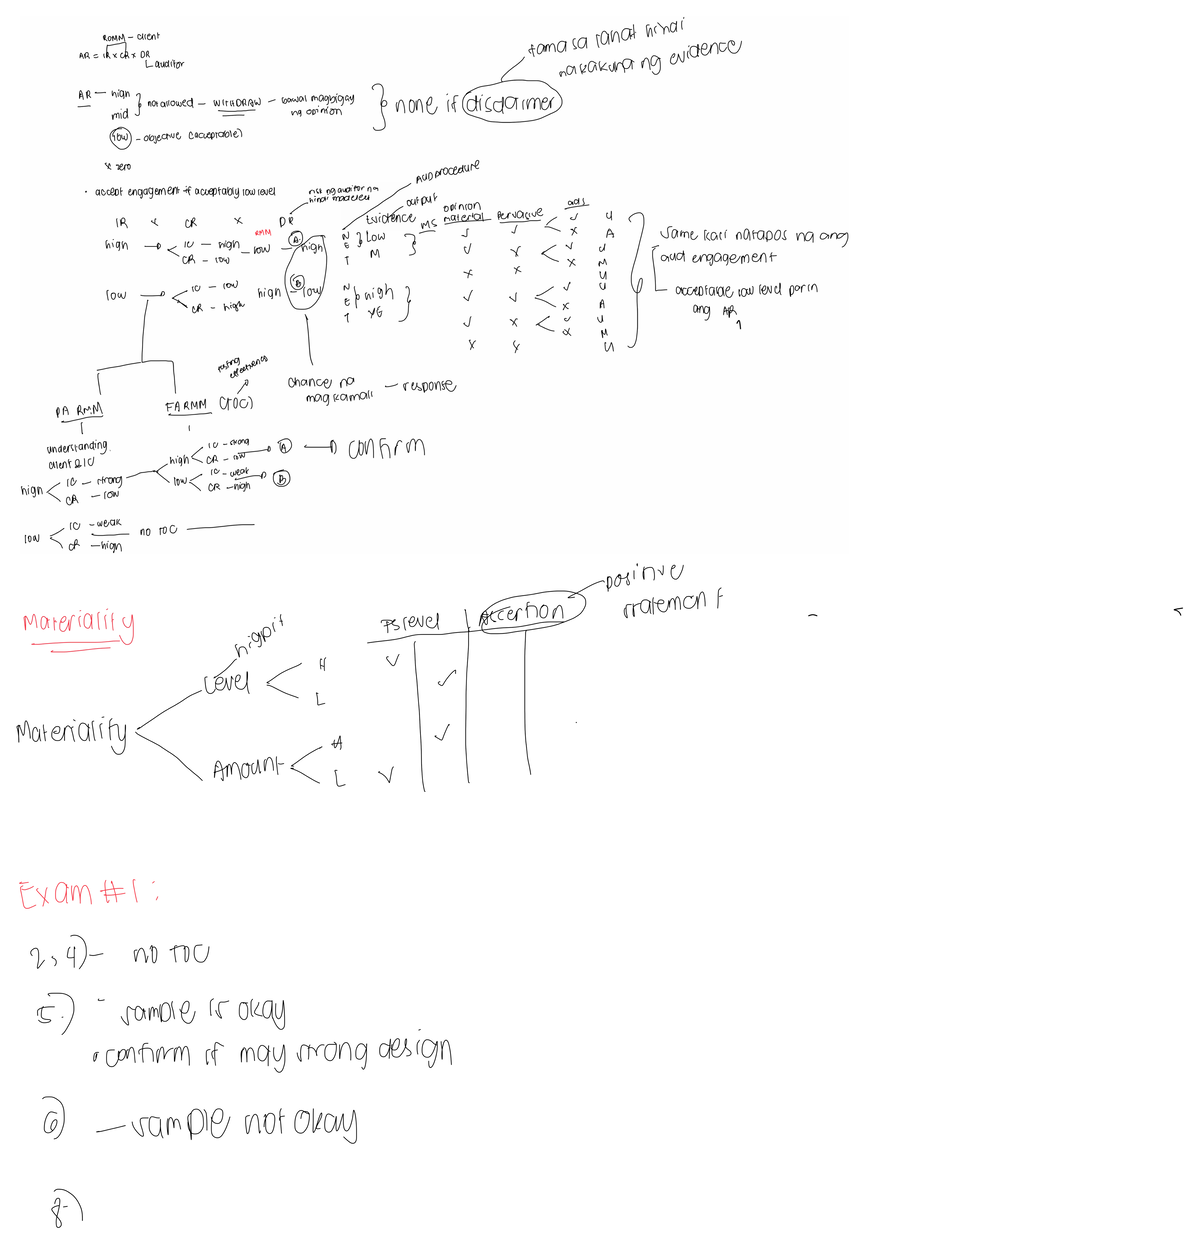 ROMM - client
AR = IR x CR x DR
auditor
AR - high
mid
not allowed - WITHDRAW - bawal magbigay ng opinion
none if disclaimer
tama sa lahat hindi
nakakuha ng evidence
low - objective (acceptable)
x zero
• accept engagement if acceptably low level
risk ng auditor na
hindi
AUD procedure
output
IR x CR x DR
Evidence
MS
opinion
material
Pervasive
adj
high
IC - high
CR - low
RMM
low - high
A
N
E
T
Low
M
low
IC - low
CR - high
high - low
B
N
E
T
high
✓ ✓ ✓ U
x A
✓ x ✓ U
x M
x x U
✓ ✓ ✓ U
x A
✓ x ✓ U
x M
x x U
same kati natapos na ang
aud engagement
acceptable low level parin
ang AR
chance na
magkamali - response
testing
effectiveness
PA RMM
FARMM (TOC)
understanding
client & IC
high
IC - strong
CR - low
high
IC - strong
CR - low
A
confirm
low
IC - weak
CR - high
B
low
IC - weak
CR - high
no TOC
Materiality
FS level
Accertion
positive
statement
Materiality
Level
H ✓
L ✓
Amount
H ✓
L ✓
Exam #1:
2, 4) - no TOC
5.) - sample is okay
• confirm if may strong design
6) - sample not okay
8.)